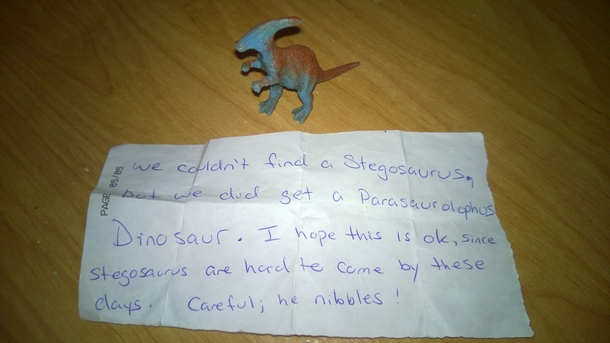 we couldn't find a Stegosaurus,
but we did get a Parasaurolophus
Dinosaur. I hope this is ok, since
stegosaurus are hard to come by these
days. Careful; he nibbles!
PAGE 05/05